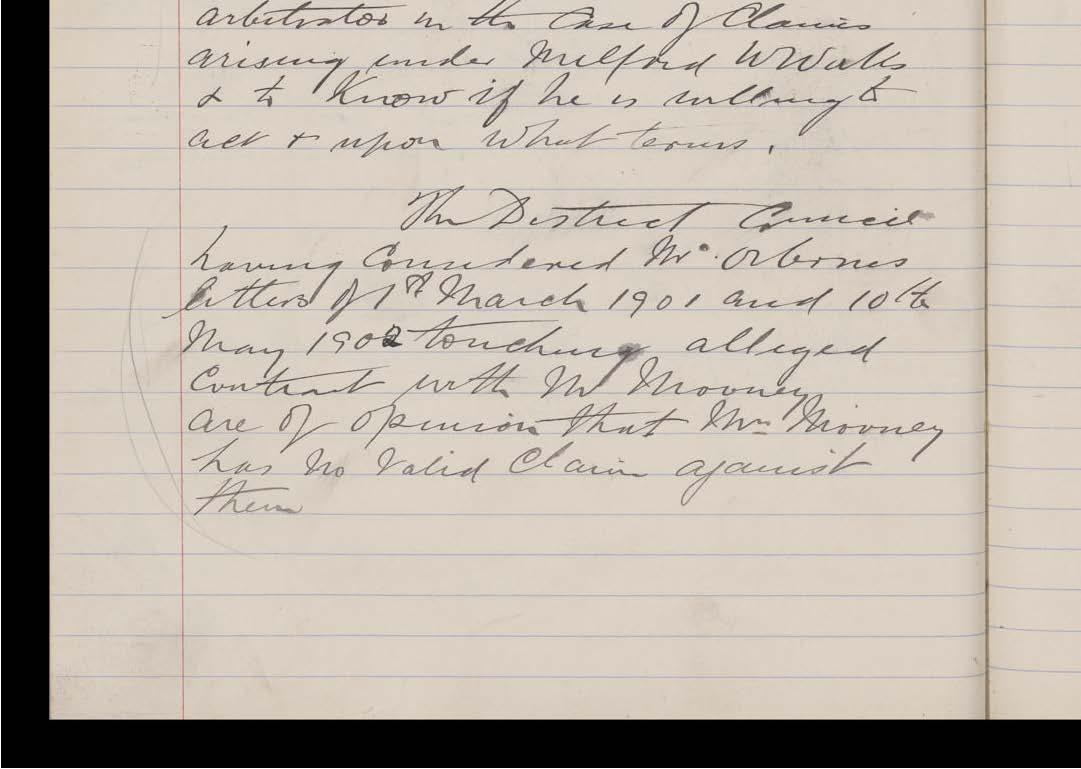 arbitrator in the Case of Claims
arising under Milford WWorks
& to Know if he is willing to
act & upon what terms.
The District Council
having Considered Mr. Osbornes
letters of 1st March 1901 and 10th
May 1902 touching alleged
Contract with Mr Mooney
are of opinion that Mrs Mooney
has no Valid Claim against
them